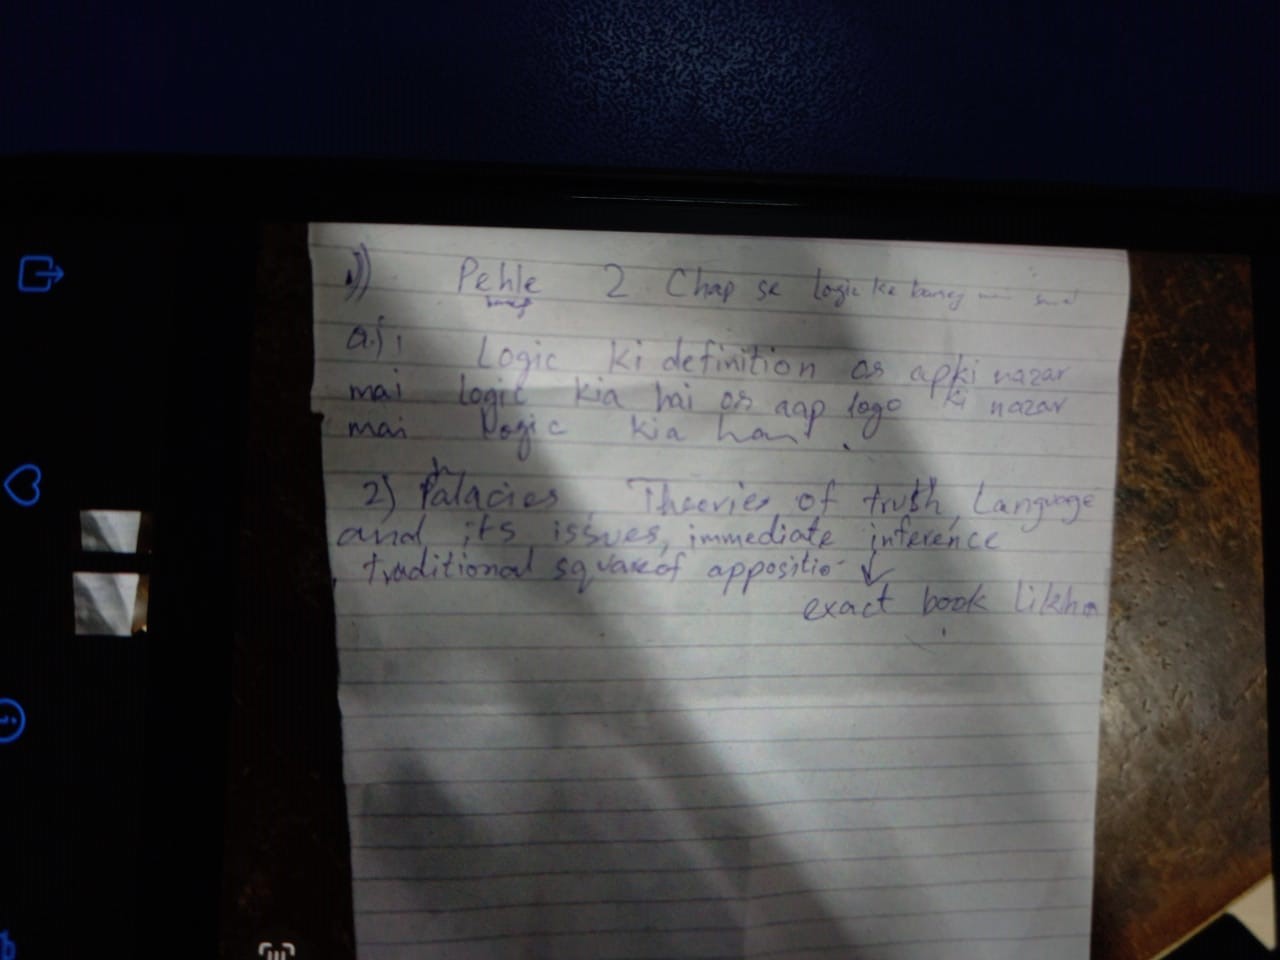 1)) Pehle 2 Chap se logic ke
a.) Logic ki definition or apki nazar
mai logic kia hai or aap logo ki nazar
mai logic kia hai.
2) Falacies, Theories of truth, Language
and its issues, immediate inference
traditional square of appositio-
exact book likhna